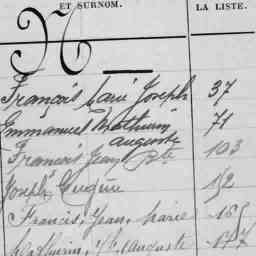 ET SURNOM.
LA LISTE.
N
François Marie Joseph 37
Emmanuel Mathurin 71
auguste
François Jean Bte 103
Joseph Eugène 152
Francis, Jean, Marie 165
Mathurin, auguste 177